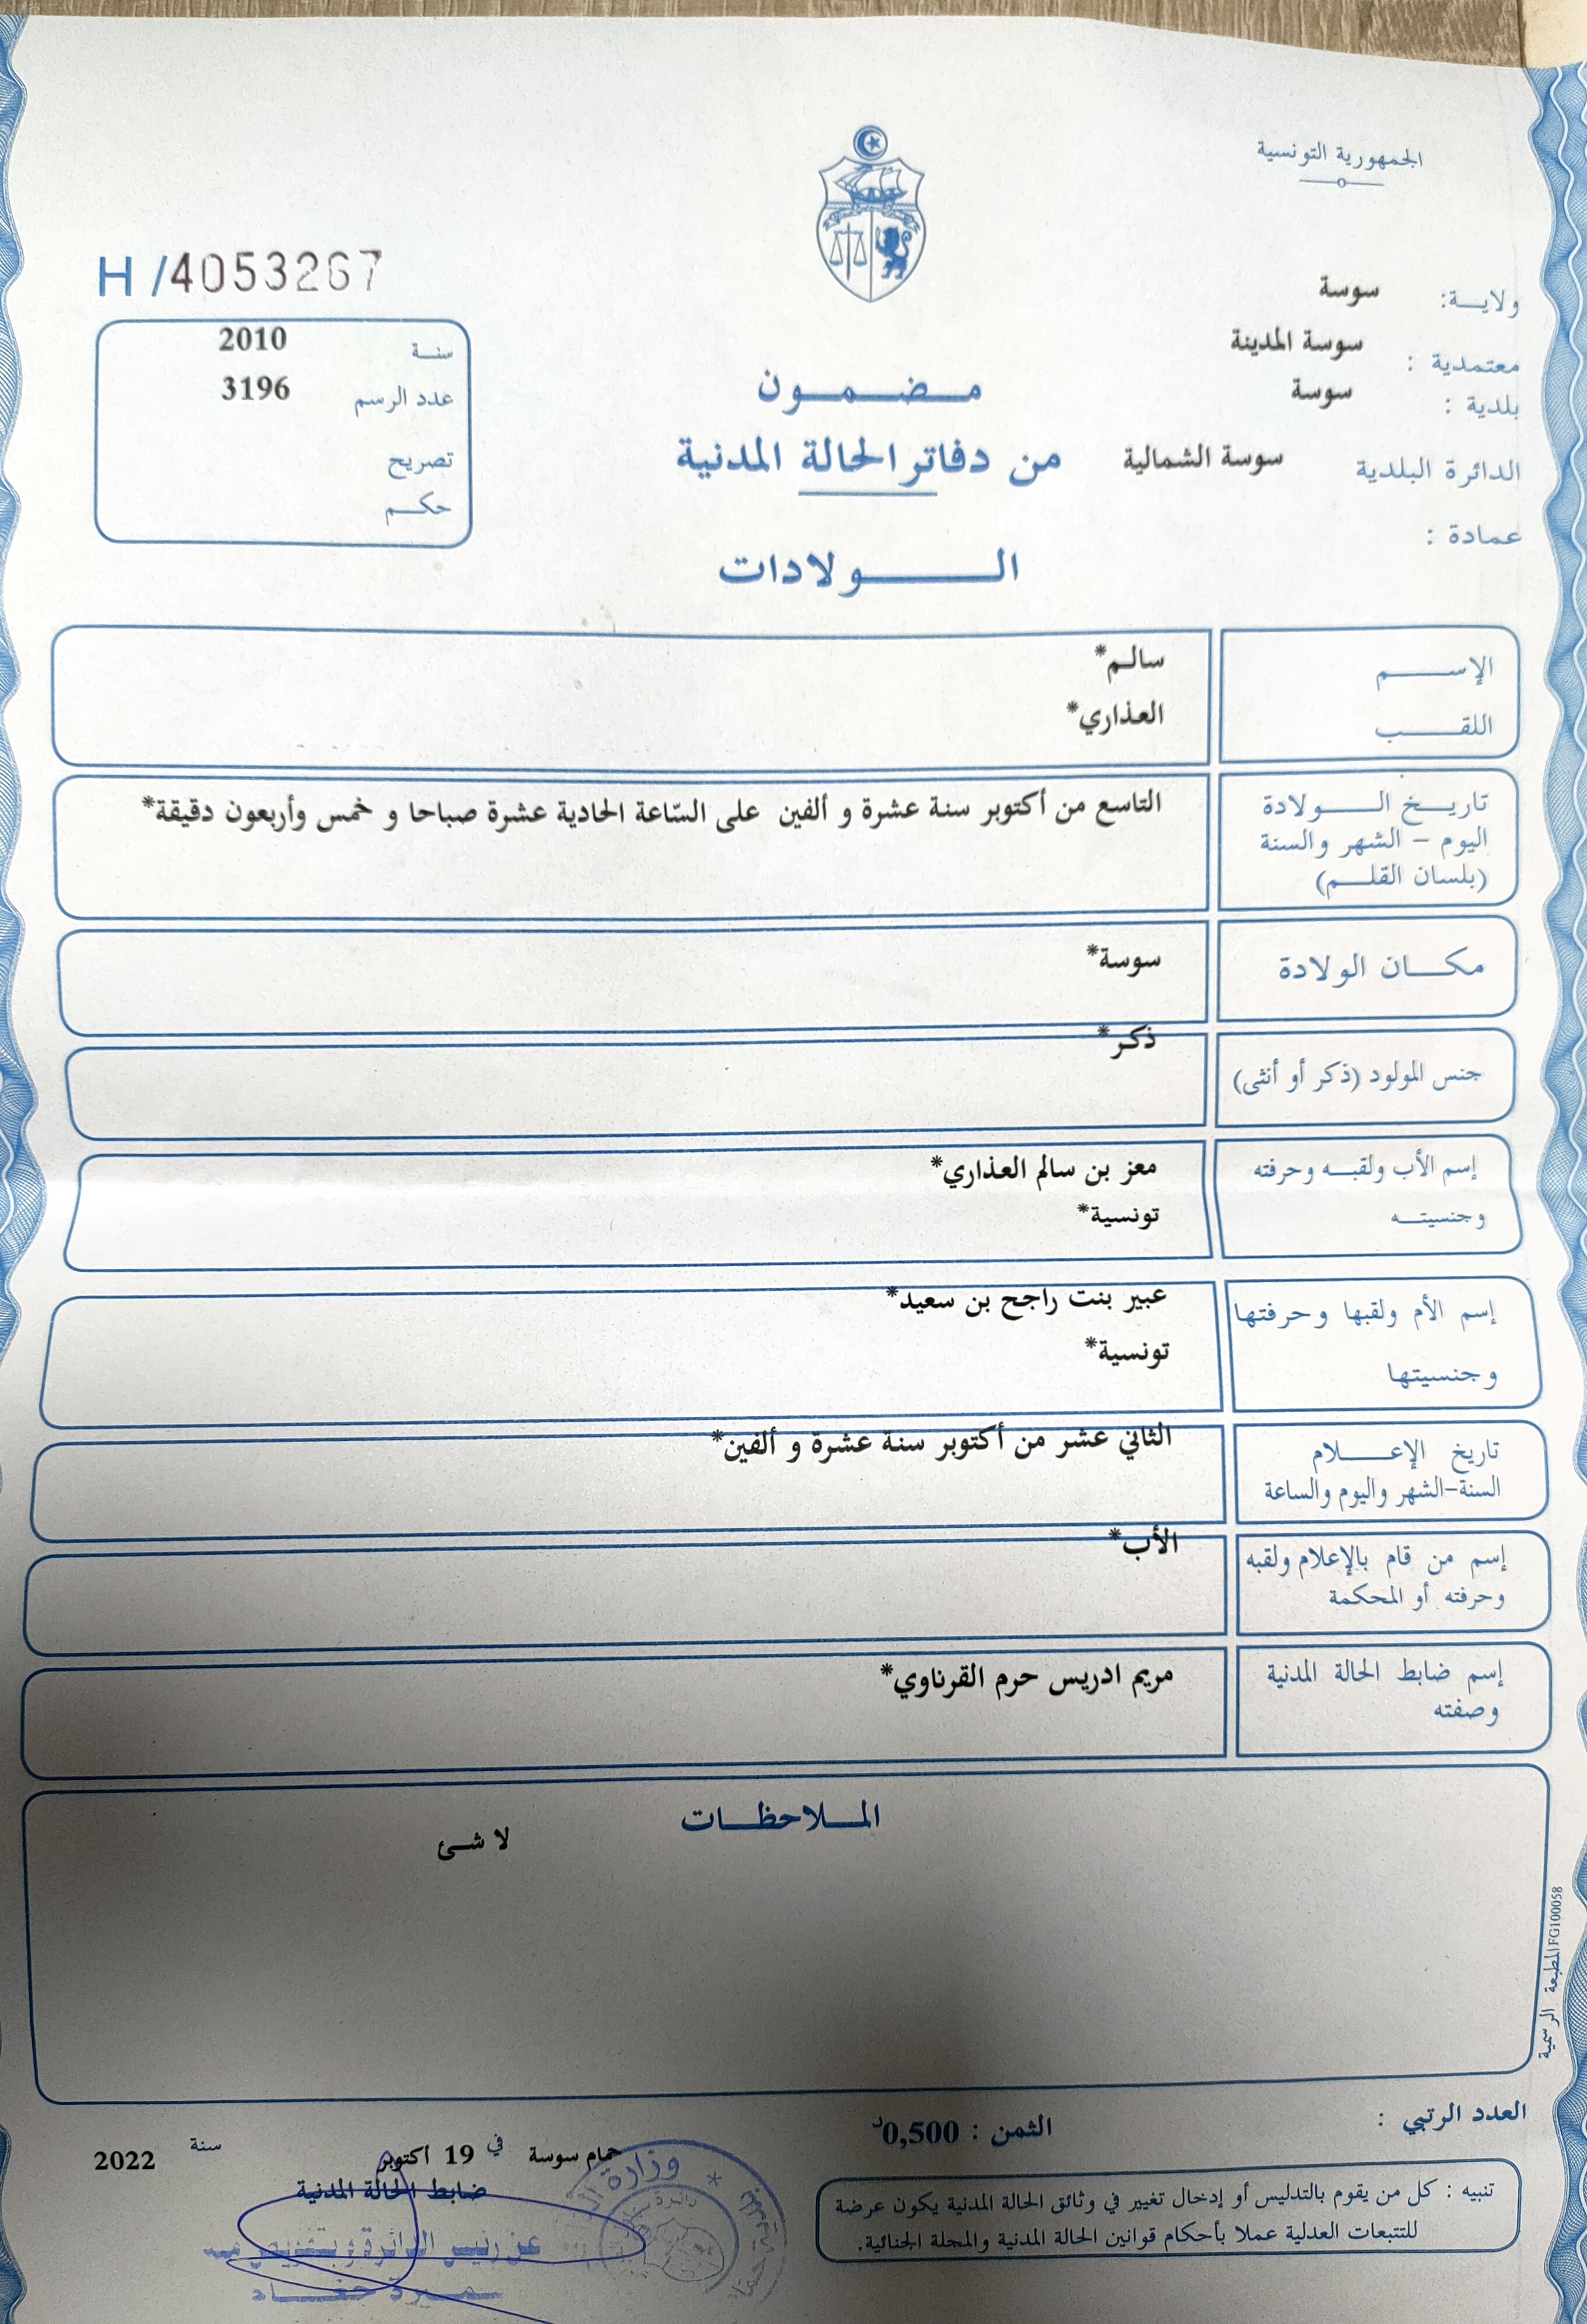 الجمهورية التونسية
ولاية: سوسة
معتمدية : سوسة المدينة
بلدية : سوسة
الدائرة البلدية سوسة الشمالية
عمادة :
H /4053267
سنة 2010
عدد الرسم 3196
تصريح
حكم
مضمون
من دفاتر الحالة المدنية
الولادات
الإسم سالم*
اللقب العذاري*
تاريخ الولادة التاسع من أكتوبر سنة عشرة و ألفين على السّاعة الحادية عشرة صباحا و خمس وأربعون دقيقة*
اليوم – الشهر والسنة
(بلسان القلم)
مكان الولادة سوسة*
جنس المولود (ذكر أو أنثى) ذكر*
إسم الأب ولقبه وحرفته معز بن سالم العذاري*
وجنسيته تونسية*
إسم الأم ولقبها وحرفتها عبير بنت راجح بن سعيد*
وجنسيتها تونسية*
تاريخ الإعلام الثاني عشر من أكتوبر سنة عشرة و ألفين*
السنة-الشهر واليوم والساعة
إسم من قام بالإعلام ولقبه الأب*
وحرفته أو المحكمة
إسم ضابط الحالة المدنية مريم ادريس حرم القرناوي*
وصفته
الملاحظات
لا شئ
المطبعة الرسمية FG100058
العدد الرتبي :
الثمن : 0,500د
تنبيه : كل من يقوم بالتدليس أو إدخال تغيير في وثائق الحالة المدنية يكون عرضة
للتتبعات العدلية عملا بأحكام قوانين الحالة المدنية والمجلة الجنائية.
حمام سوسة في 19 أكتوبر سنة 2022
ضابط الحالة المدنية
عن رئيس الدائرة وبتفويض منه
وزارة